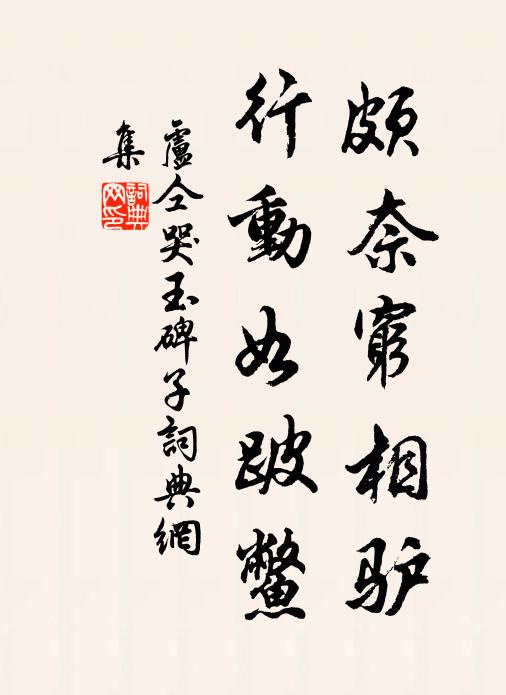 頗奈窮相驴
行動如跛鱉
盧仝哭玉碑子詞典網
集
詞典
网印